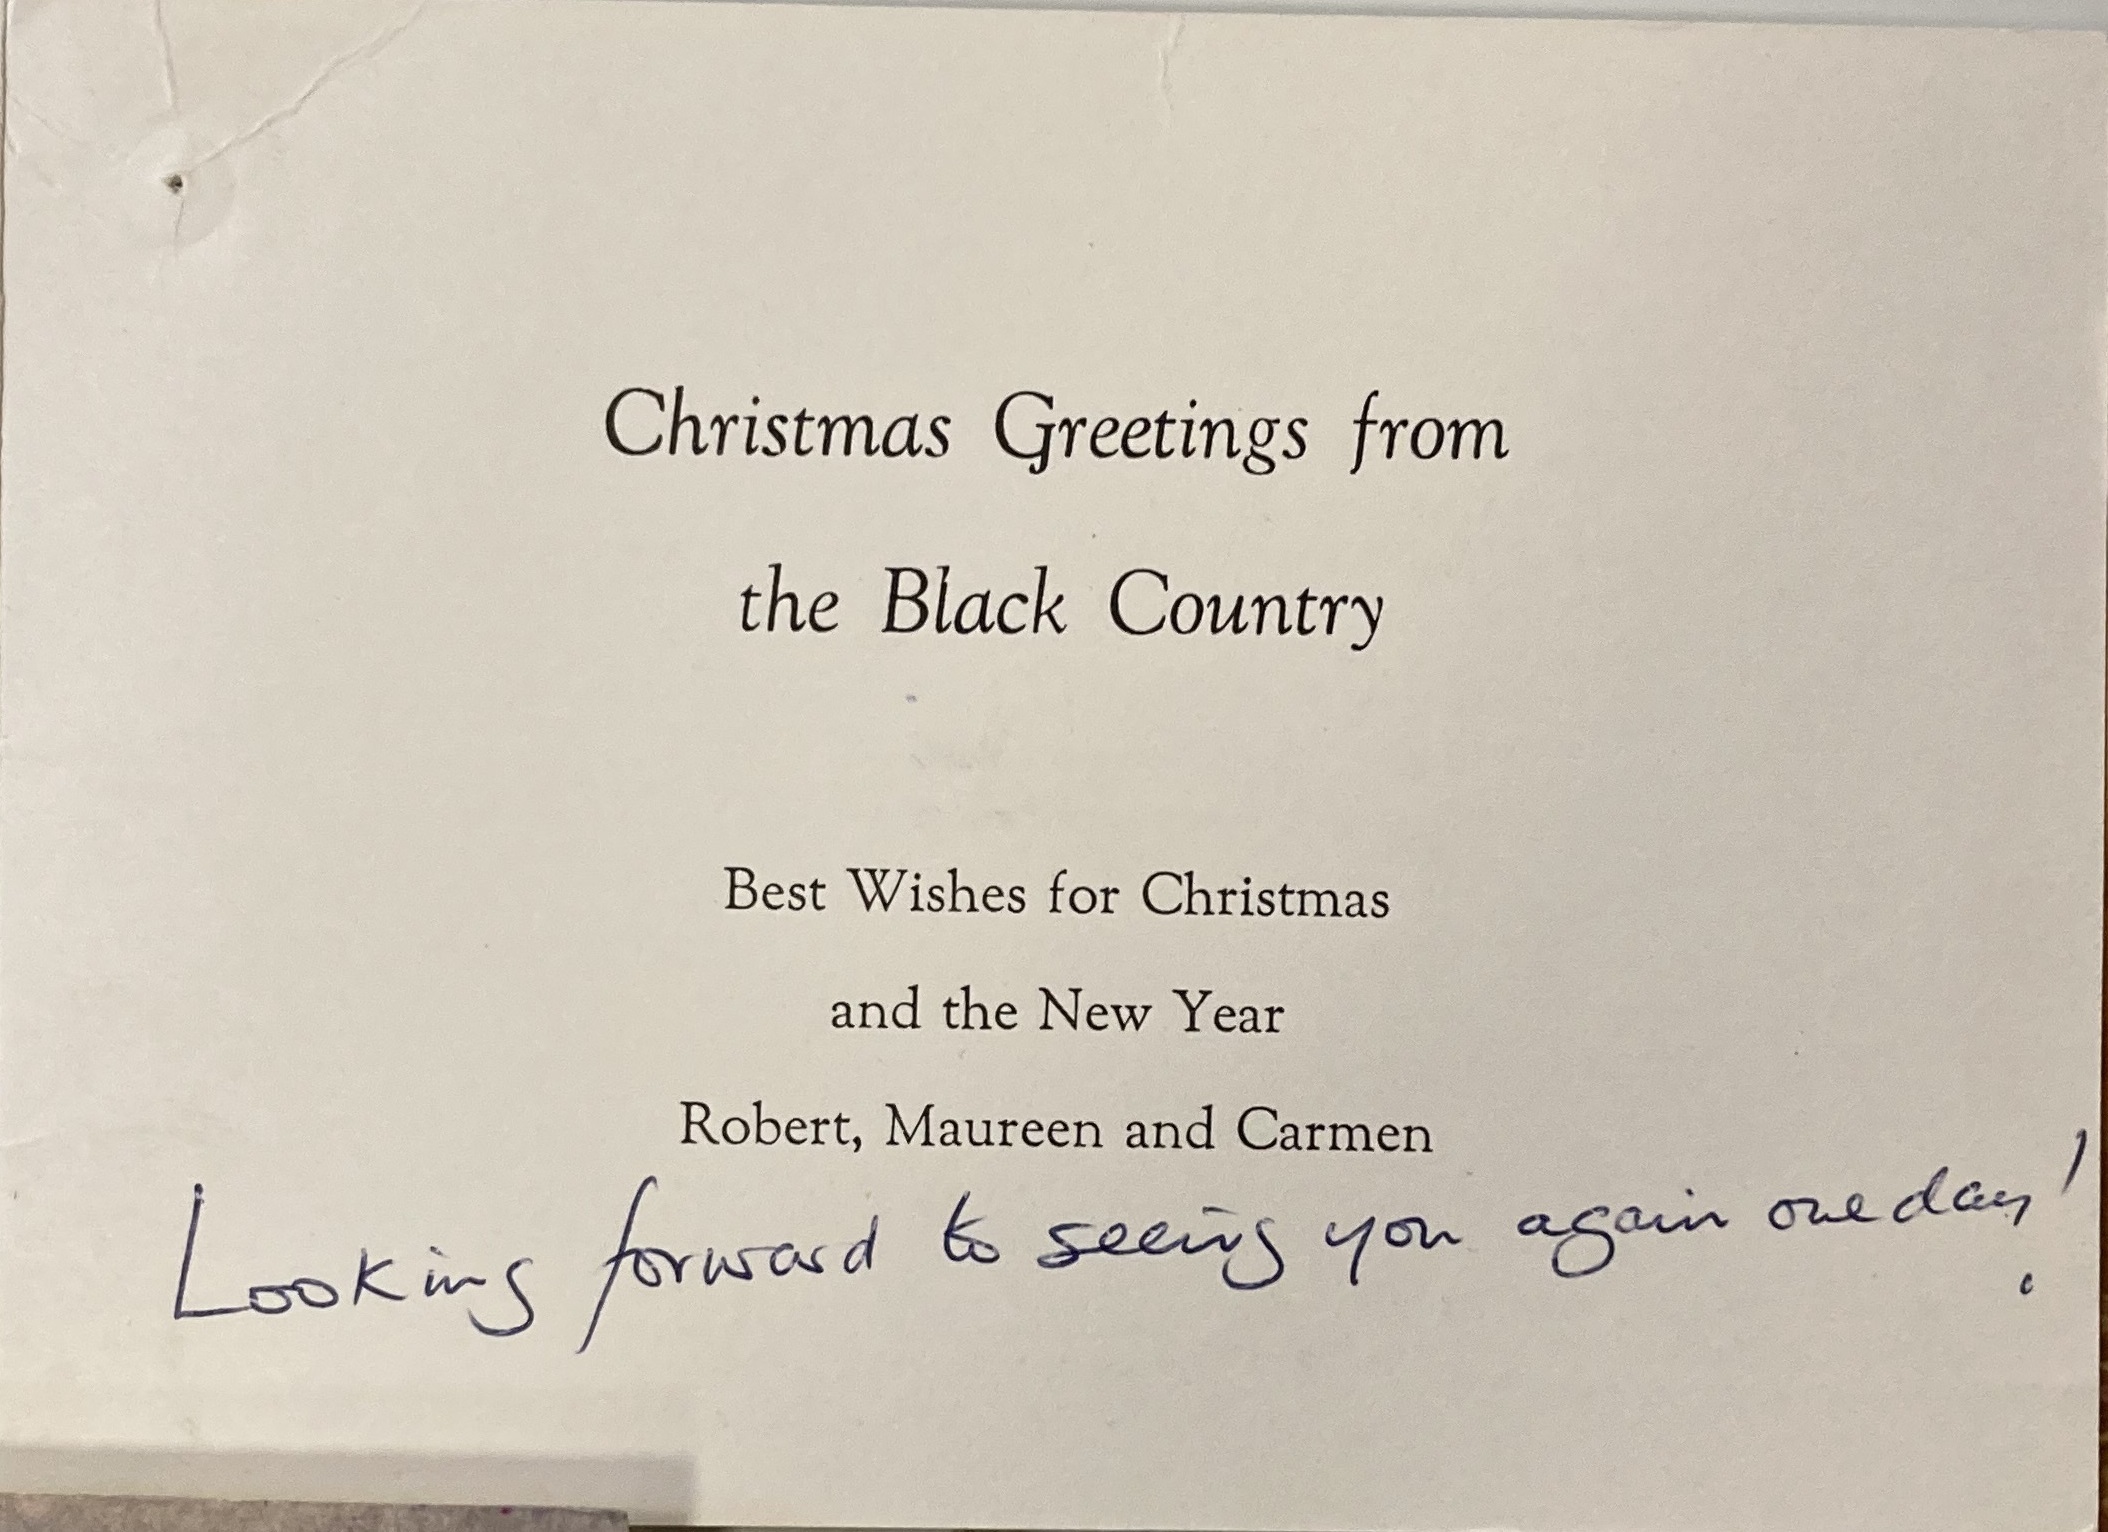 Christmas Greetings from
the Black Country
Best Wishes for Christmas
and the New Year
Robert, Maureen and Carmen
Looking forward to seeing you again one day!